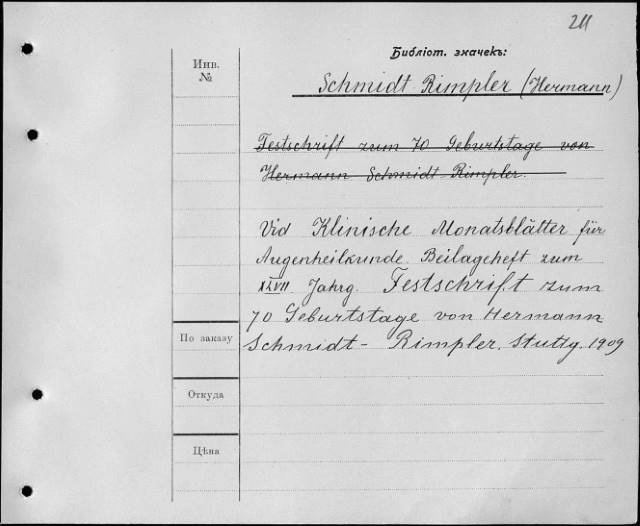 211
Библіот. значекъ:
Инв.
№
Schmidt-Rimpler (Hermann)
Festschrift zum 70 Geburtstage von
Hermann Schmidt-Rimpler.
Vid Klinische Monatsblätter für
Augenheilkunde. Beilageheft zum
XLVII Jahrg. Festschrift zum
70 Geburtstage von Hermann
По заказу
Schmidt-Rimpler. Stuttg. 1909
Откуда
Цѣна